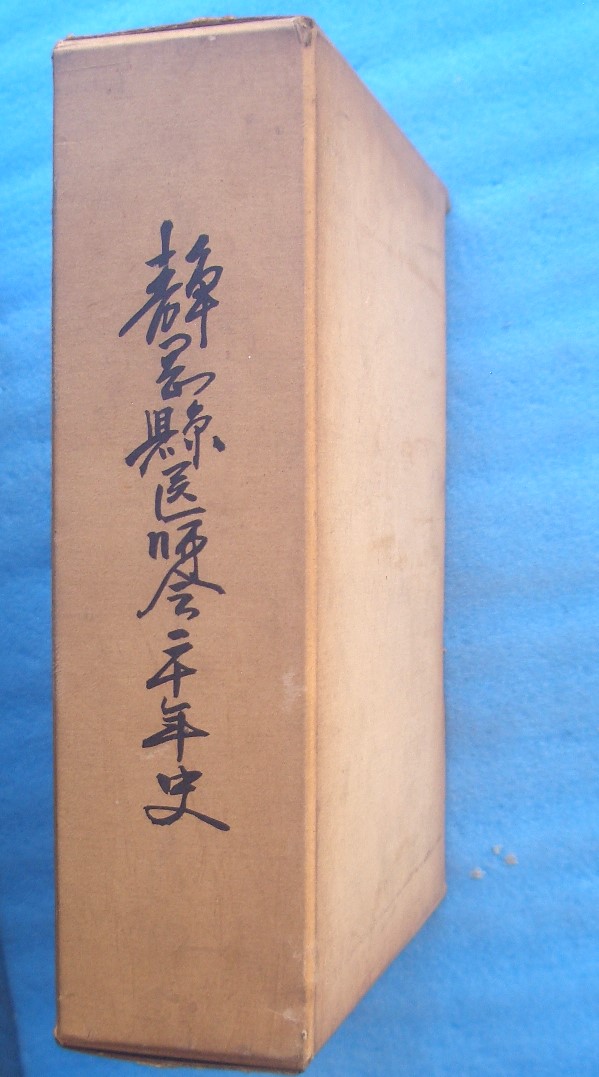 静岡縣医師会二十年史